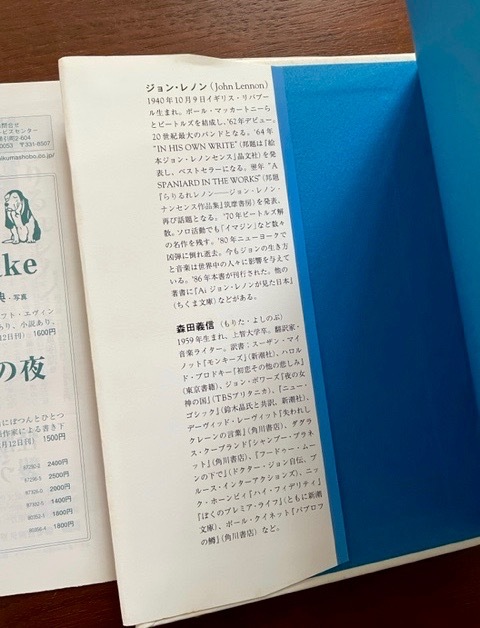 ジョン・レノン(John Lennon)
1940年10月9日イギリス・リバプー
ル生まれ。ポール・マッカートニーら
とビートルズを結成し、'62年デビュー。
20世紀最大のバンドとなる。'64年
"IN HIS OWN WRITE"(邦題は『絵
本ジョン・レノンセンス』晶文社)を発
表し、ベストセラーになる。翌年"A
SPANIARD IN THE WORKS"(邦題
『らりるれレノン――ジョン・レノン・
ナンセンス作品集』筑摩書房)を発表、
再び話題となる。'70年ビートルズ解
散。ソロ活動でも「イマジン」など数々
の名作を残す。'80年ニューヨークで
凶弾に倒れ逝去。今もジョンの生き方
と音楽は世界中の人々に影響を与えて
いる。'86年本書が刊行された。他の
著書に『Ai ジョン・レノンが見た日本』
(ちくま文庫)などがある。
森田義信(もりた・よしのぶ)
1959年生まれ。上智大学卒。翻訳家・
音楽ライター。訳書:スーザン・マイ
ノット『モンキーズ』(新潮社)、ハロル
ド・ブロドキー『初恋その他の悲しみ』
(東京書籍)、ジョン・ボワーズ『夜の女
神の国』(TBSブリタニカ)、『ニュー・
ゴシック』(鈴木晶氏と共訳、新潮社)、
デーヴィッド・レーヴィット『失われし
クレーンの言葉』(角川書店)、ダグラ
ス・クープランド『シャンプー・プラネ
ット』(角川書店)、『フードゥー・ムー
ンの下で』(ドクター・ジョン自伝、ブ
ルース・インターアクションズ)、ニッ
ク・ホーンビィ『ハイ・フィデリティ』
『ぼくのプレミア・ライフ』(ともに新潮
文庫)、ポール・クイネット『パブロフ
の鱒』(角川書店)など。
問合せ
ービスセンター
引町2-604
0053 ☎331-8507
ikumashobo.co.jp/
ke
典・写真
フト・エヴィン
あり、小説あり、
12日刊) 1600円
の夜
にぽつんとひとつ
作家による書き下
月12日刊) 1500円
2400円
2500円
2000円
1400円
1800円
1800円